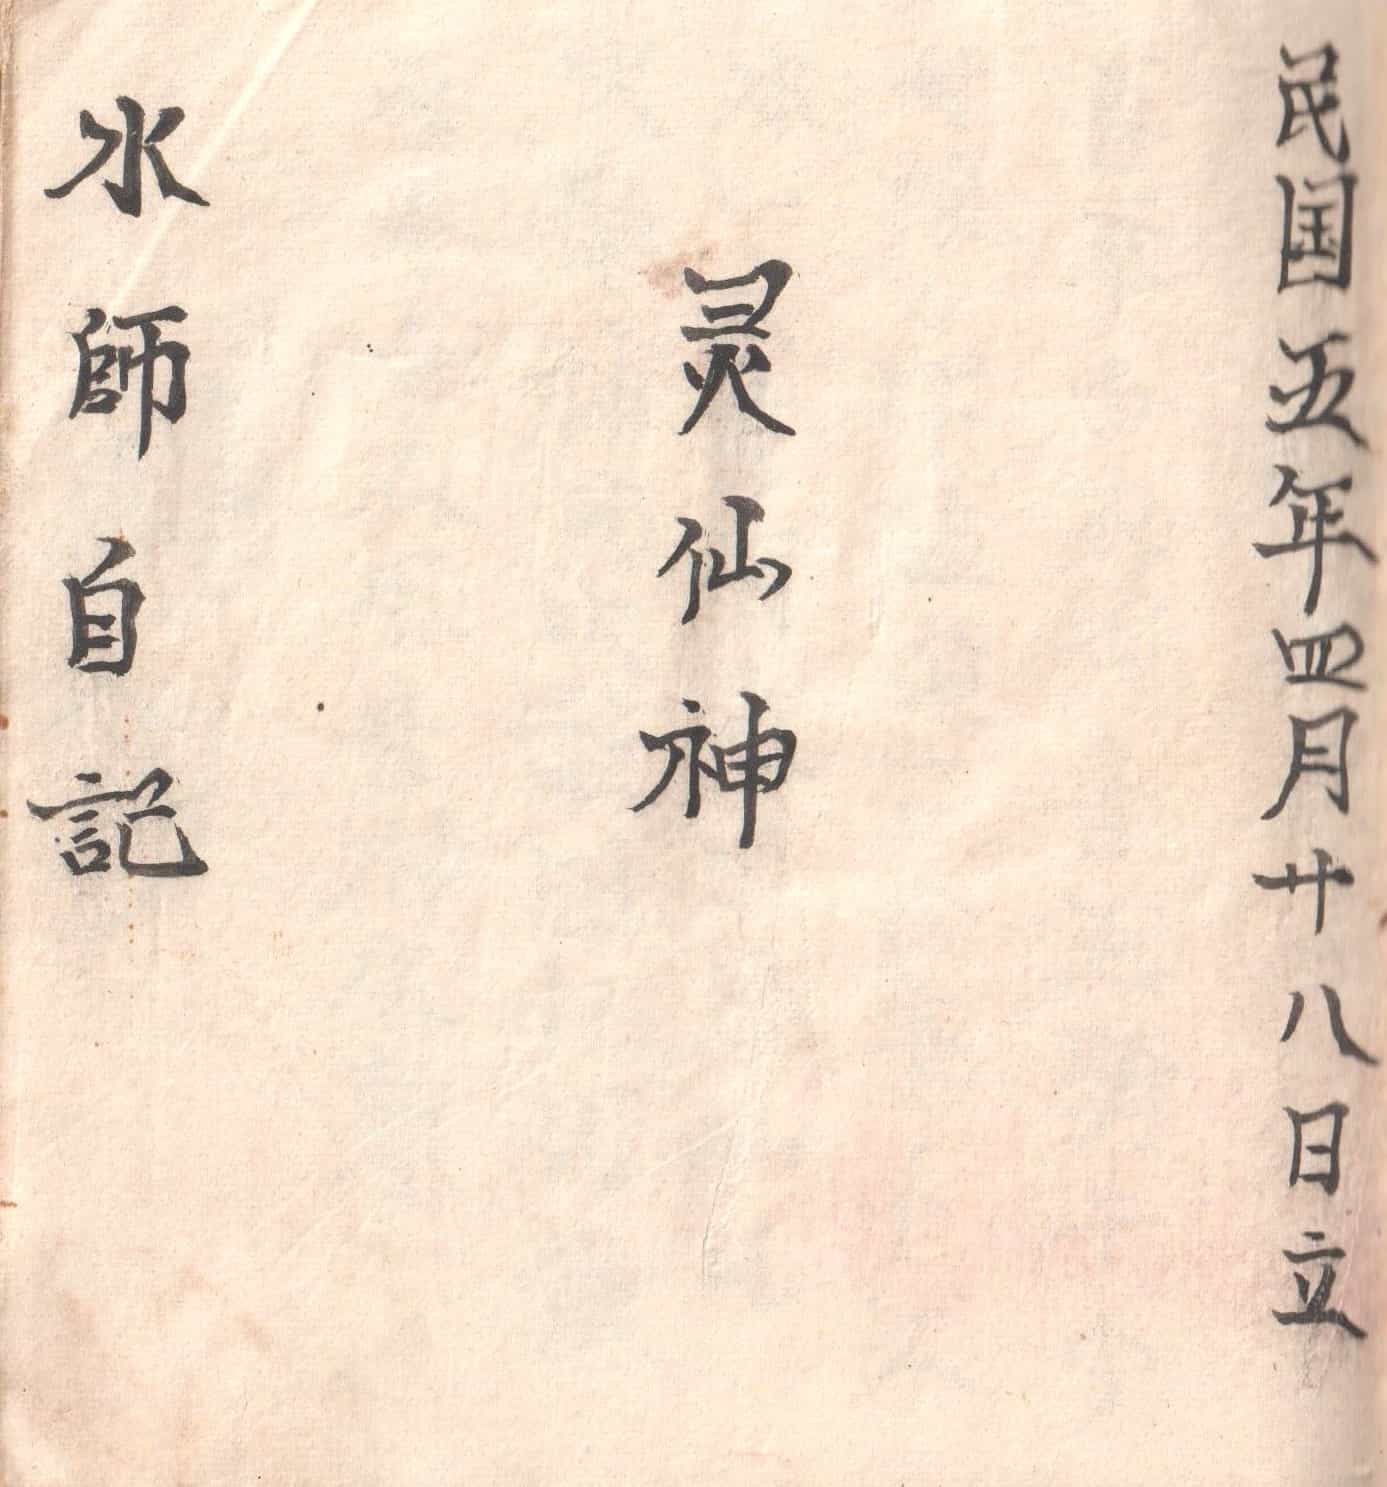 民国五年四月廿八日立
灵仙神
水師自記